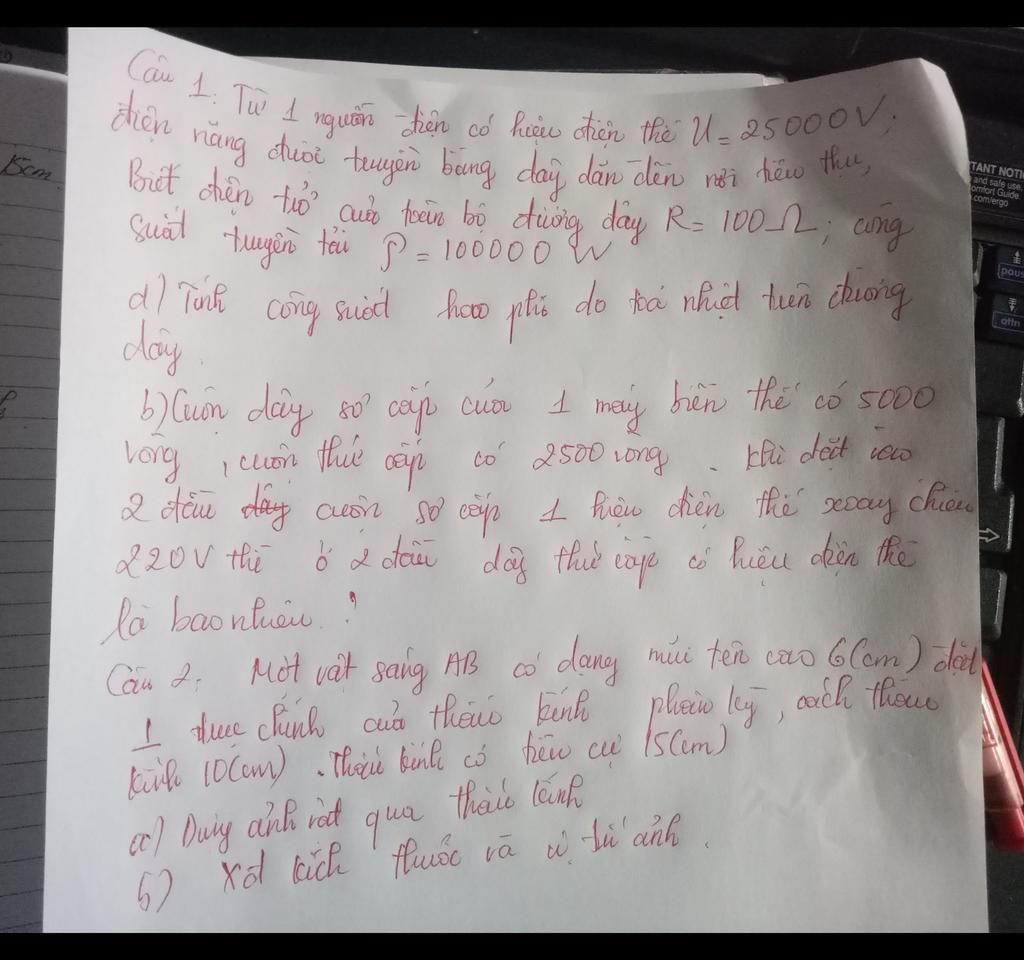 Câu 1. Từ 1 nguồn điện có hiệu điện thế U = 25000V;
điện năng được truyền bằng dây dẫn đến nơi tiêu thụ,
Biết điện trở của toàn bộ đường dây R = 100Ω; công
suất truyền tải P = 100000 W
a) Tính công suất hao phí do toả nhiệt trên đường
dây.
b) Cuộn dây sơ cấp của 1 máy biến thế có 5000
vòng, cuộn thứ cấp có 2500 vòng. Khi đặt vào
2 đầu dây cuộn sơ cấp 1 hiệu điện thế xoay chiều
220V thì ở 2 đầu dây thứ cấp có hiệu điện thế
là bao nhiêu.?
Câu 2. Một vật sáng AB có dạng mũi tên cao 6(cm) đặt
⊥ trục chính của thấu kính phân kỳ, cách thấu
kính 10(cm). Thấu kính có tiêu cự 15(cm)
a) Dựng ảnh vật qua thấu kính
b) Xđ kích thước và vị trí ảnh.
15cm
TANT NOTI
and safe use,
omfort Guide.
.com/ergo
paus
attn